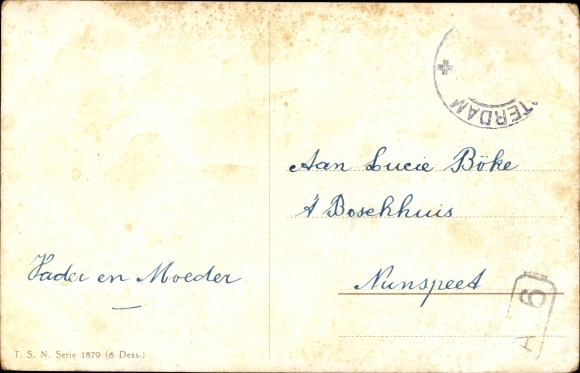 Vader en Moeder
T. S. N. Serie 1879 (6 Dess.)
TERDAM
Aan Lucie Böke
't Boschhuis
Nunspeet
H 6